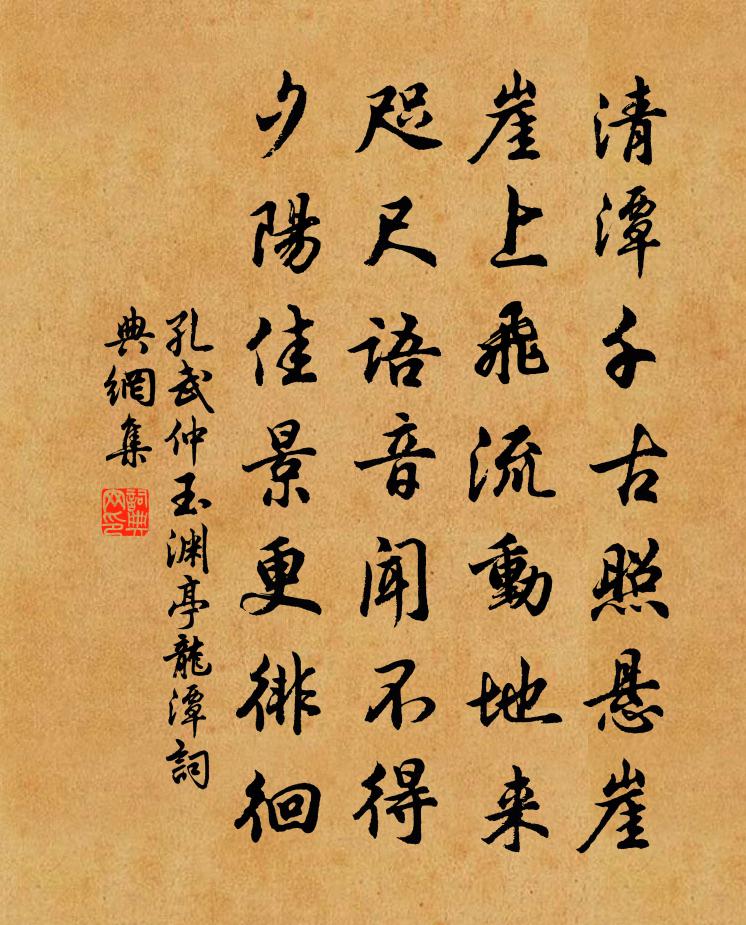 清潭千古照悬崖
崖上飛流動地来
咫尺語音聞不得
夕陽佳景更徘徊
孔武仲玉渊亭龍潭詞
典網集
詞典
网印